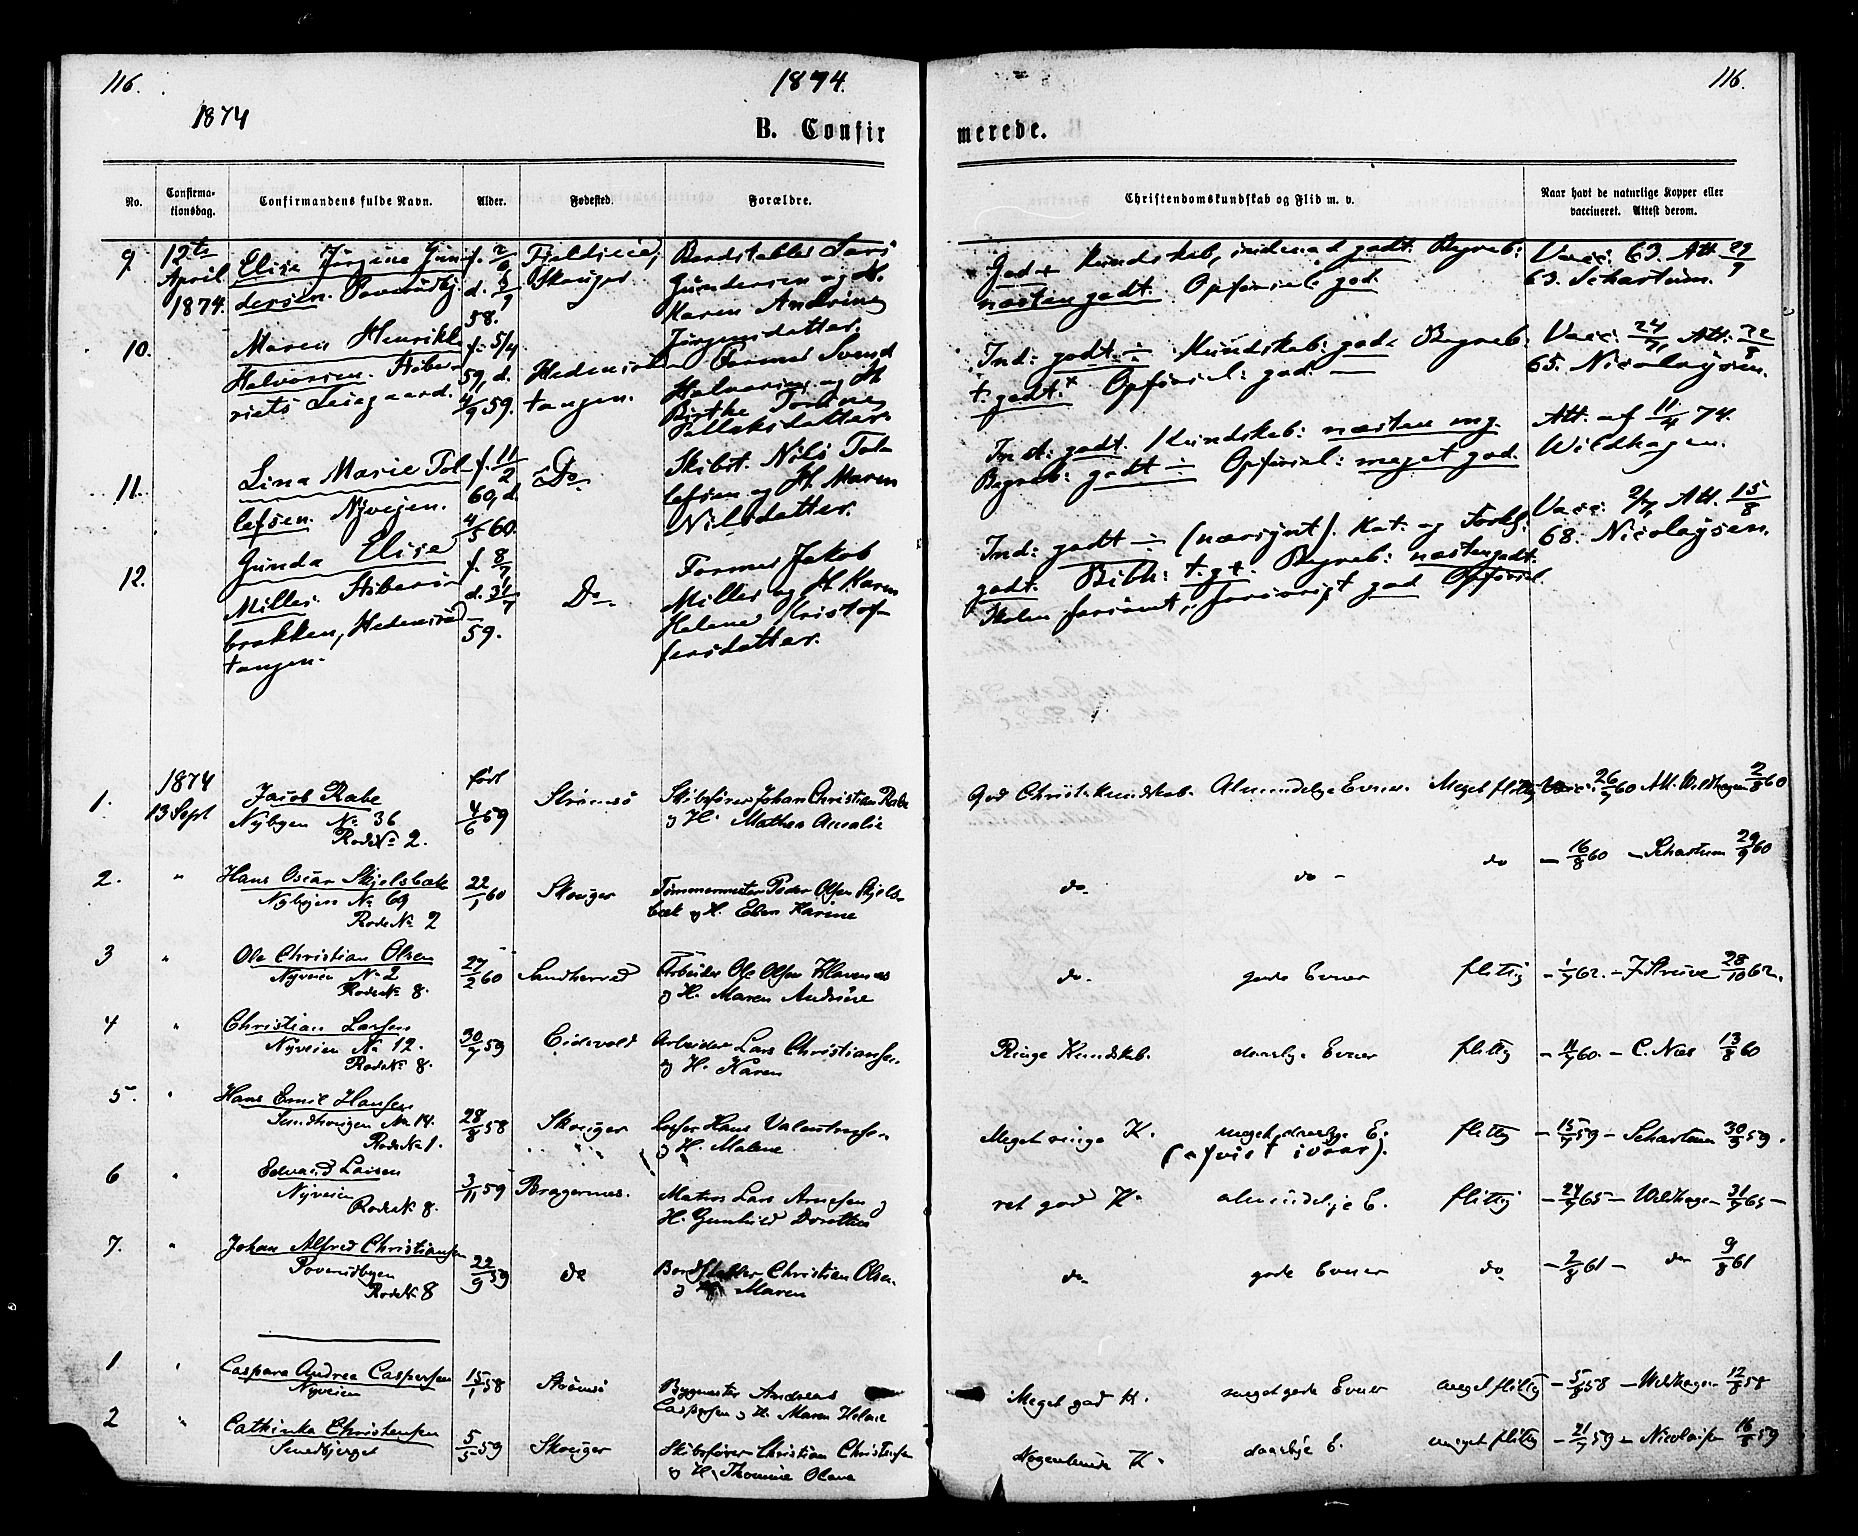 116.
1874
1874.
116.
B. Confir
merede.
No.
Confirma-
tionsdag.
Confirmandens fulde Navn.
Alder.
Fødested.
Forældre.
Christendomskundskab og Flid m. v.
Naar havt de naturlige Kopper eller
vaccineret. Attest derom.
9
12te
April
1874.
Elise Jørgine Gun-
dersen.
58.
Skouger
Lars
Gundersen og H.
Karen Andrine
Jørgensdatter.
Kundskab, godt. Begreb:
næsten godt. Opførsel: god.
Vacc: 63. Att. 29/9
63. Schartum.
10.
Maren Henrikke
Halvorsen.
f. 5/4
59, d.
4/9 59.
Svend
Halvorsen og H
Birthe
Ind: godt ÷ Kundskab: god. Begreb.
t. godt.x Opførsel: god. —
Vacc: 24/ Att:
65. Nicolaysen.
11.
Lina Marie Tol-
lefsen. Nyveien.
f. 11/2
60, d.
4/5 60.
Do
Skibst. Nils Tol-
lefsen og H. Maren
Nilsdatter.
Ind: godt. Kundskab: næsten mg.
Begreb: godt ÷ Opførsel: meget god.
Att. af 11/4 74.
Wildhagen.
12.
Gunda Elise
Miller.
brakken,
tangen.
f. 8/7
d. 31/7
59.
Do.
Former Jakob
Miller og H Karen
Helene Kristof-
fersdatter.
Ind: godt ÷ (nærsynt). Kat: og Forkl:
godt. Bibh: t. g +. Begreb: næsten godt.
Skolen forsømt, forøvrigt god Opførsel.
Vacc: Att. 15/8
68. Nicolaysen.
1.
1874
13 Sept
Jacob Rabe
Nybyen No 36
Rode No 2.
født
4/6 59
Strømsø
Skibsfører Johan Christian Rabe
og H. Mathea Amalie
God Christ. kundskab. Almindelige Evner. Meget flittig
26/7 60 Att. Wildhagen 2/8 60
2.
"
Hans Oscar Skjelsbæk
Nybyen No 69
Rode No 2
22/1 60
Skouger
Tømmermester Peder Olsen Skjels-
bæk og H. Ellen Karine
do. do - do
- 16/8 60 - Schartum 29/9 60
3
"
Ole Christian Olsen
Nyveien No 2
Rode No 8.
27/2 60
Sandherred
Arbeider Ole Olsen
og H. Maren Andrine
do. gode Evner flittig
62. - J. Struve 28/10 62.
4
"
Christian Larsen
Nyveien No 12.
Rode No 8.
30/7 59
Eidsvold
Arbeider Lars Christiansen
og H. Karen
Ringe Kundskab. daarlige Evner flittig
- 11/7 60. - C. Næs 13/8 60
5.
"
Hans Emil Hansen
No 14.
Rode No 1.
28/8 58
Skouger
Losser Hans Valentinsen
og H. Malene
Meget ringe K. meget daarlige E. flittig
(afvist ivaar).
- 15/7 59 - Schartum 30/9 59.
6
"
Edvard Larsen
Nyveien
Rode No 8.
3/11 59
Bragernes.
Matros Lars Arnesen og
H. Gunhild Dorothea
ret god K. almindelige E. flittig
- 24/7 65 - Wildhagen 31/7 65 -
7.
"
Johan Alfred Christiansen
Poverudbyen
Rode No 8
22/9 59
do
Bordstabler Christian Olsen
og H. Maren
do. gode Evner do
- 2/8 61 - do 9/8 61
1
"
Caspara Andrea Caspersen
Nyveien
15/1 58
Strømsø
Bygmester Andreas
Caspersen og H. Maren Helene
Meget god K. meget gode Evner meget flittig
- 5/8 58 - Wildhagen 12/8 58
2
"
Cathinka Christensen
Smedbjerget
5/5 59
Skouger
Skibsfører Christian Christensen
og H. Thomine Olava
Nogenlunde K. daarlige E. meget flittig
- 21/7 59 - Nicolaisen 16/8 59